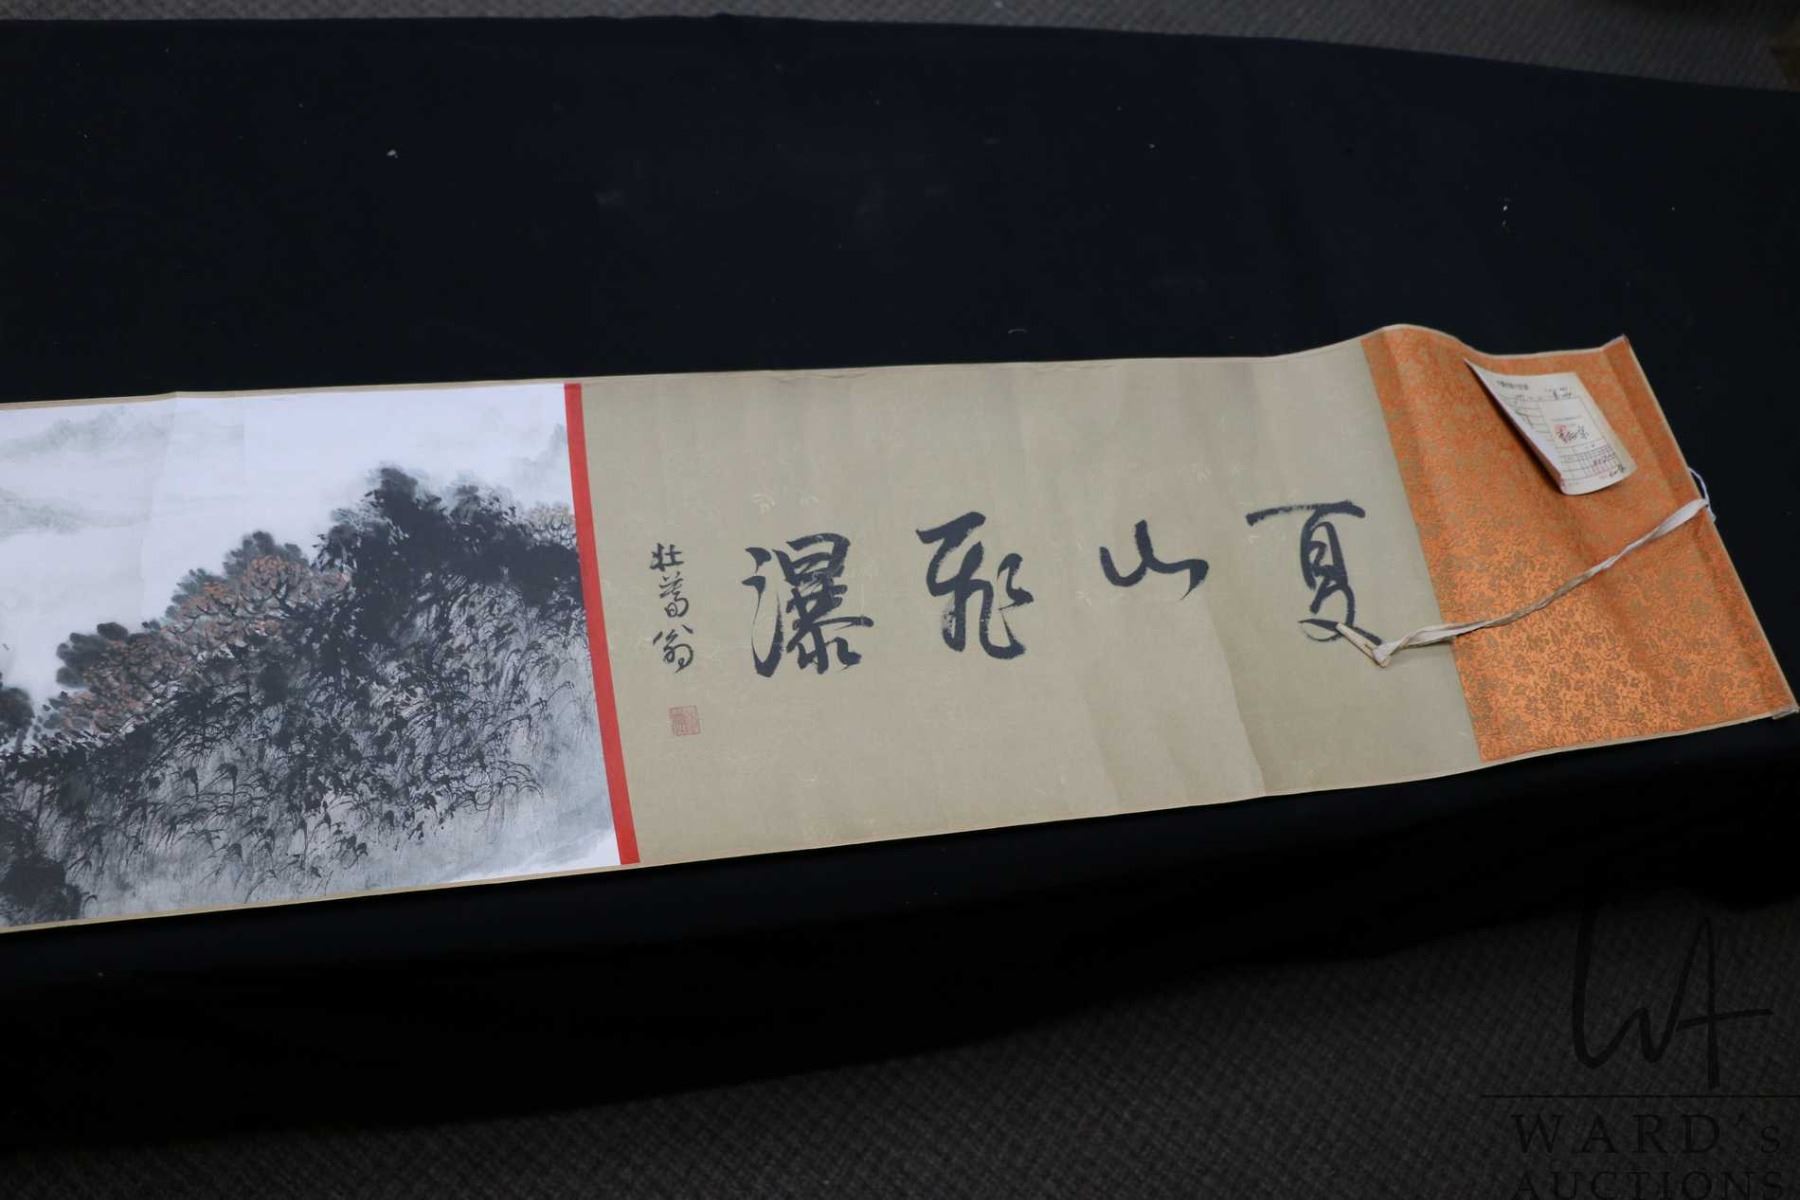 夏山飛瀑
壮暮翁
WARD's
AUCTIONS